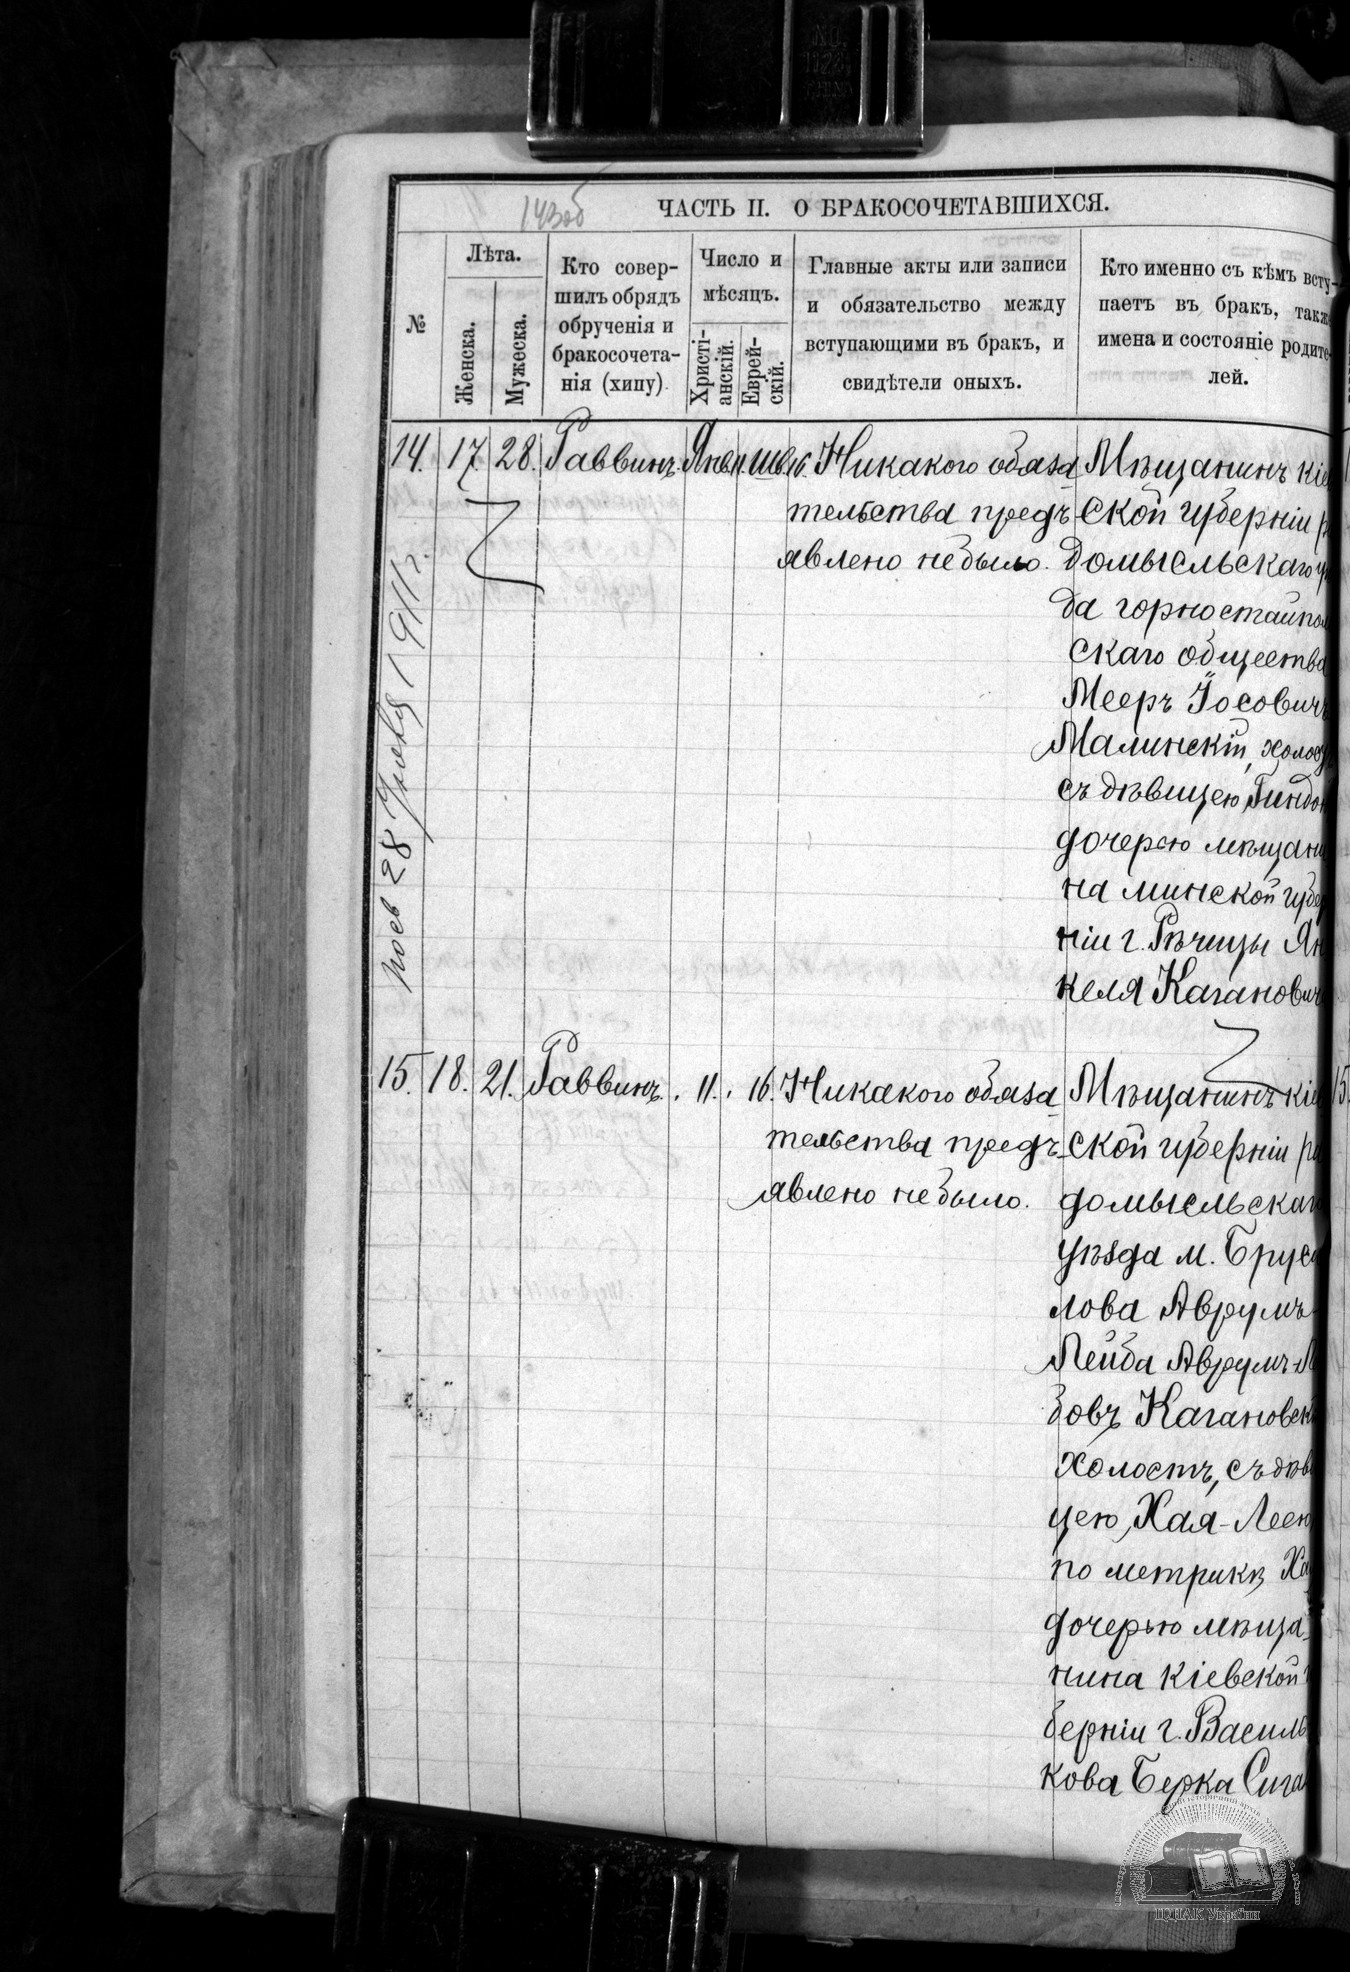 143об
ЧАСТЬ II. О БРАКОСОЧЕТАВШИХСЯ.
№
Лѣта.
Женска.
Мужеска.
Кто совер-
шилъ обрядъ
обрученія и
бракосочета-
нія (хипу)
Число и
мѣсяцъ.
Христі-
анскій.
Еврей-
скій.
Главные акты или записи
и обязательство между
вступающими въ бракъ, и
свидѣтели оныхъ.
Кто именно съ кѣмъ всту-
паетъ въ бракъ, также
имена и состояніе родите-
лей.
14. 17. 28. Раввинъ. Янв. 11. Шв. 16. Никакого обяза
тельства предъ
явлено небыло.
Мѣщанинъ кіе
ской губерніи р
домысльскаго уѣ
да горностайпол
скаго общества
Мееръ Іосовичъ
Малинскій, холос
съ дѣвицею, Гиндо
дочерею мѣщани
на минской губер
ніи г. Рѣчицы Ян
келя Каганович
28 1911 г.
15. 18. 21. Раввинъ. 11. 16. Никакого обяза
тельства предъ-
явлено небыло.
Мѣщанинъ кіе
ской губерніи ра
домысльскаго
уѣзда м. Бруси
лова Аврумъ-
Лейба Аврумъ-Л
бовъ Кагановск
холостъ, съ дѣв
цею, Хая-Леею
по метрикѣ Ха
дочерью мѣща-
нина кіевской
берніи г. Василь
кова Берка Сига
15
ЦДІАК України